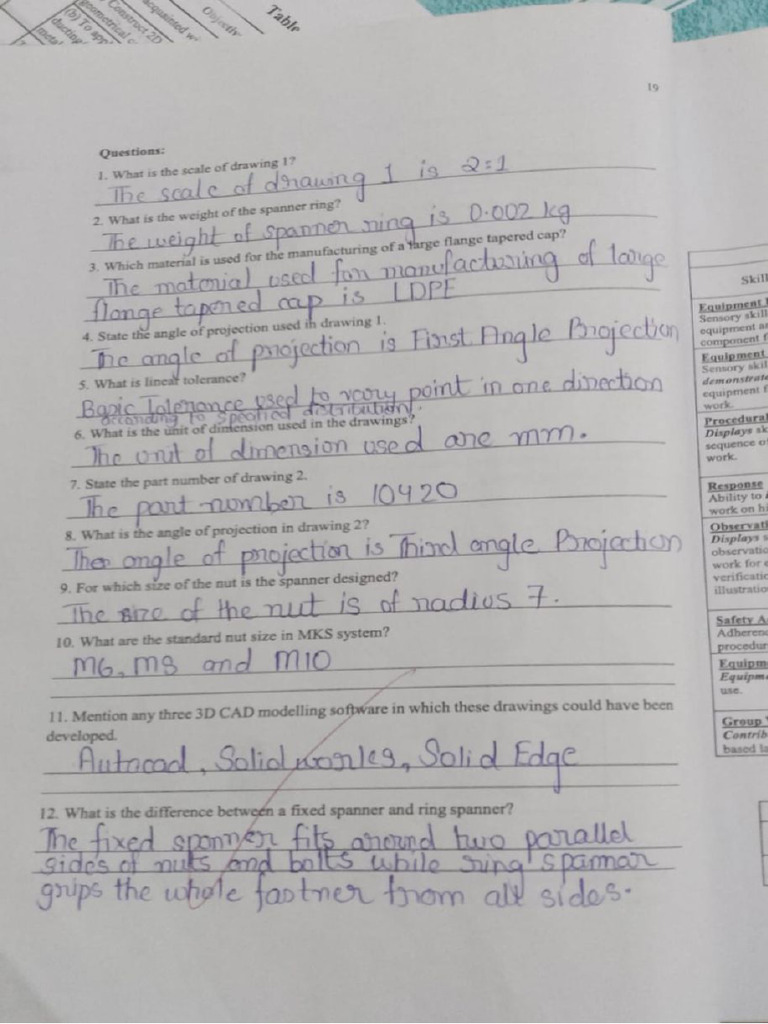 Table
Objectiv
acquainted w
Construct 2D
geometrical
(b) To app
ducting
meta
19
Questions:
1. What is the scale of drawing 1?
The scale of drawing 1 is 2:1
2. What is the weight of the spanner ring?
The weight of spanner ring is 0.002 kg
3. Which material is used for the manufacturing of a large flange tapered cap?
The material used for manufacturing of large
flange tapered cap is LDPE
4. State the angle of projection used in drawing 1.
The angle of projection is First Angle Projection
5. What is linear tolerance?
Basic Tolerance used to vary point in one direction
according to specified distribution.
6. What is the unit of dimension used in the drawings?
The unit of dimension used are mm.
7. State the part number of drawing 2.
The part number is 10420
8. What is the angle of projection in drawing 2?
The angle of projection is Third angle Projection
9. For which size of the nut is the spanner designed?
The size of the nut is of radius 7.
10. What are the standard nut size in MKS system?
M6, M8 and M10
11. Mention any three 3D CAD modelling software in which these drawings could have been
developed.
Autocad, Solidworks, Solid Edge
12. What is the difference between a fixed spanner and ring spanner?
The fixed spanner fits around two parallel
sides of nuts and bolts while ring spannar
grips the whole fastner from all sides.
Skill
Equipment
Sensory skill
equipment a
component f
Equipment
Sensory skil
demonstrate
equipment f
work.
Procedural
Displays sk
sequence o
work.
Response
Ability to
work on hi
Observati
Displays s
observatio
work for e
verificatio
illustratio
Safety A
Adheren
procedur
Equipm
Equipm
use.
Group
Contrib
based la